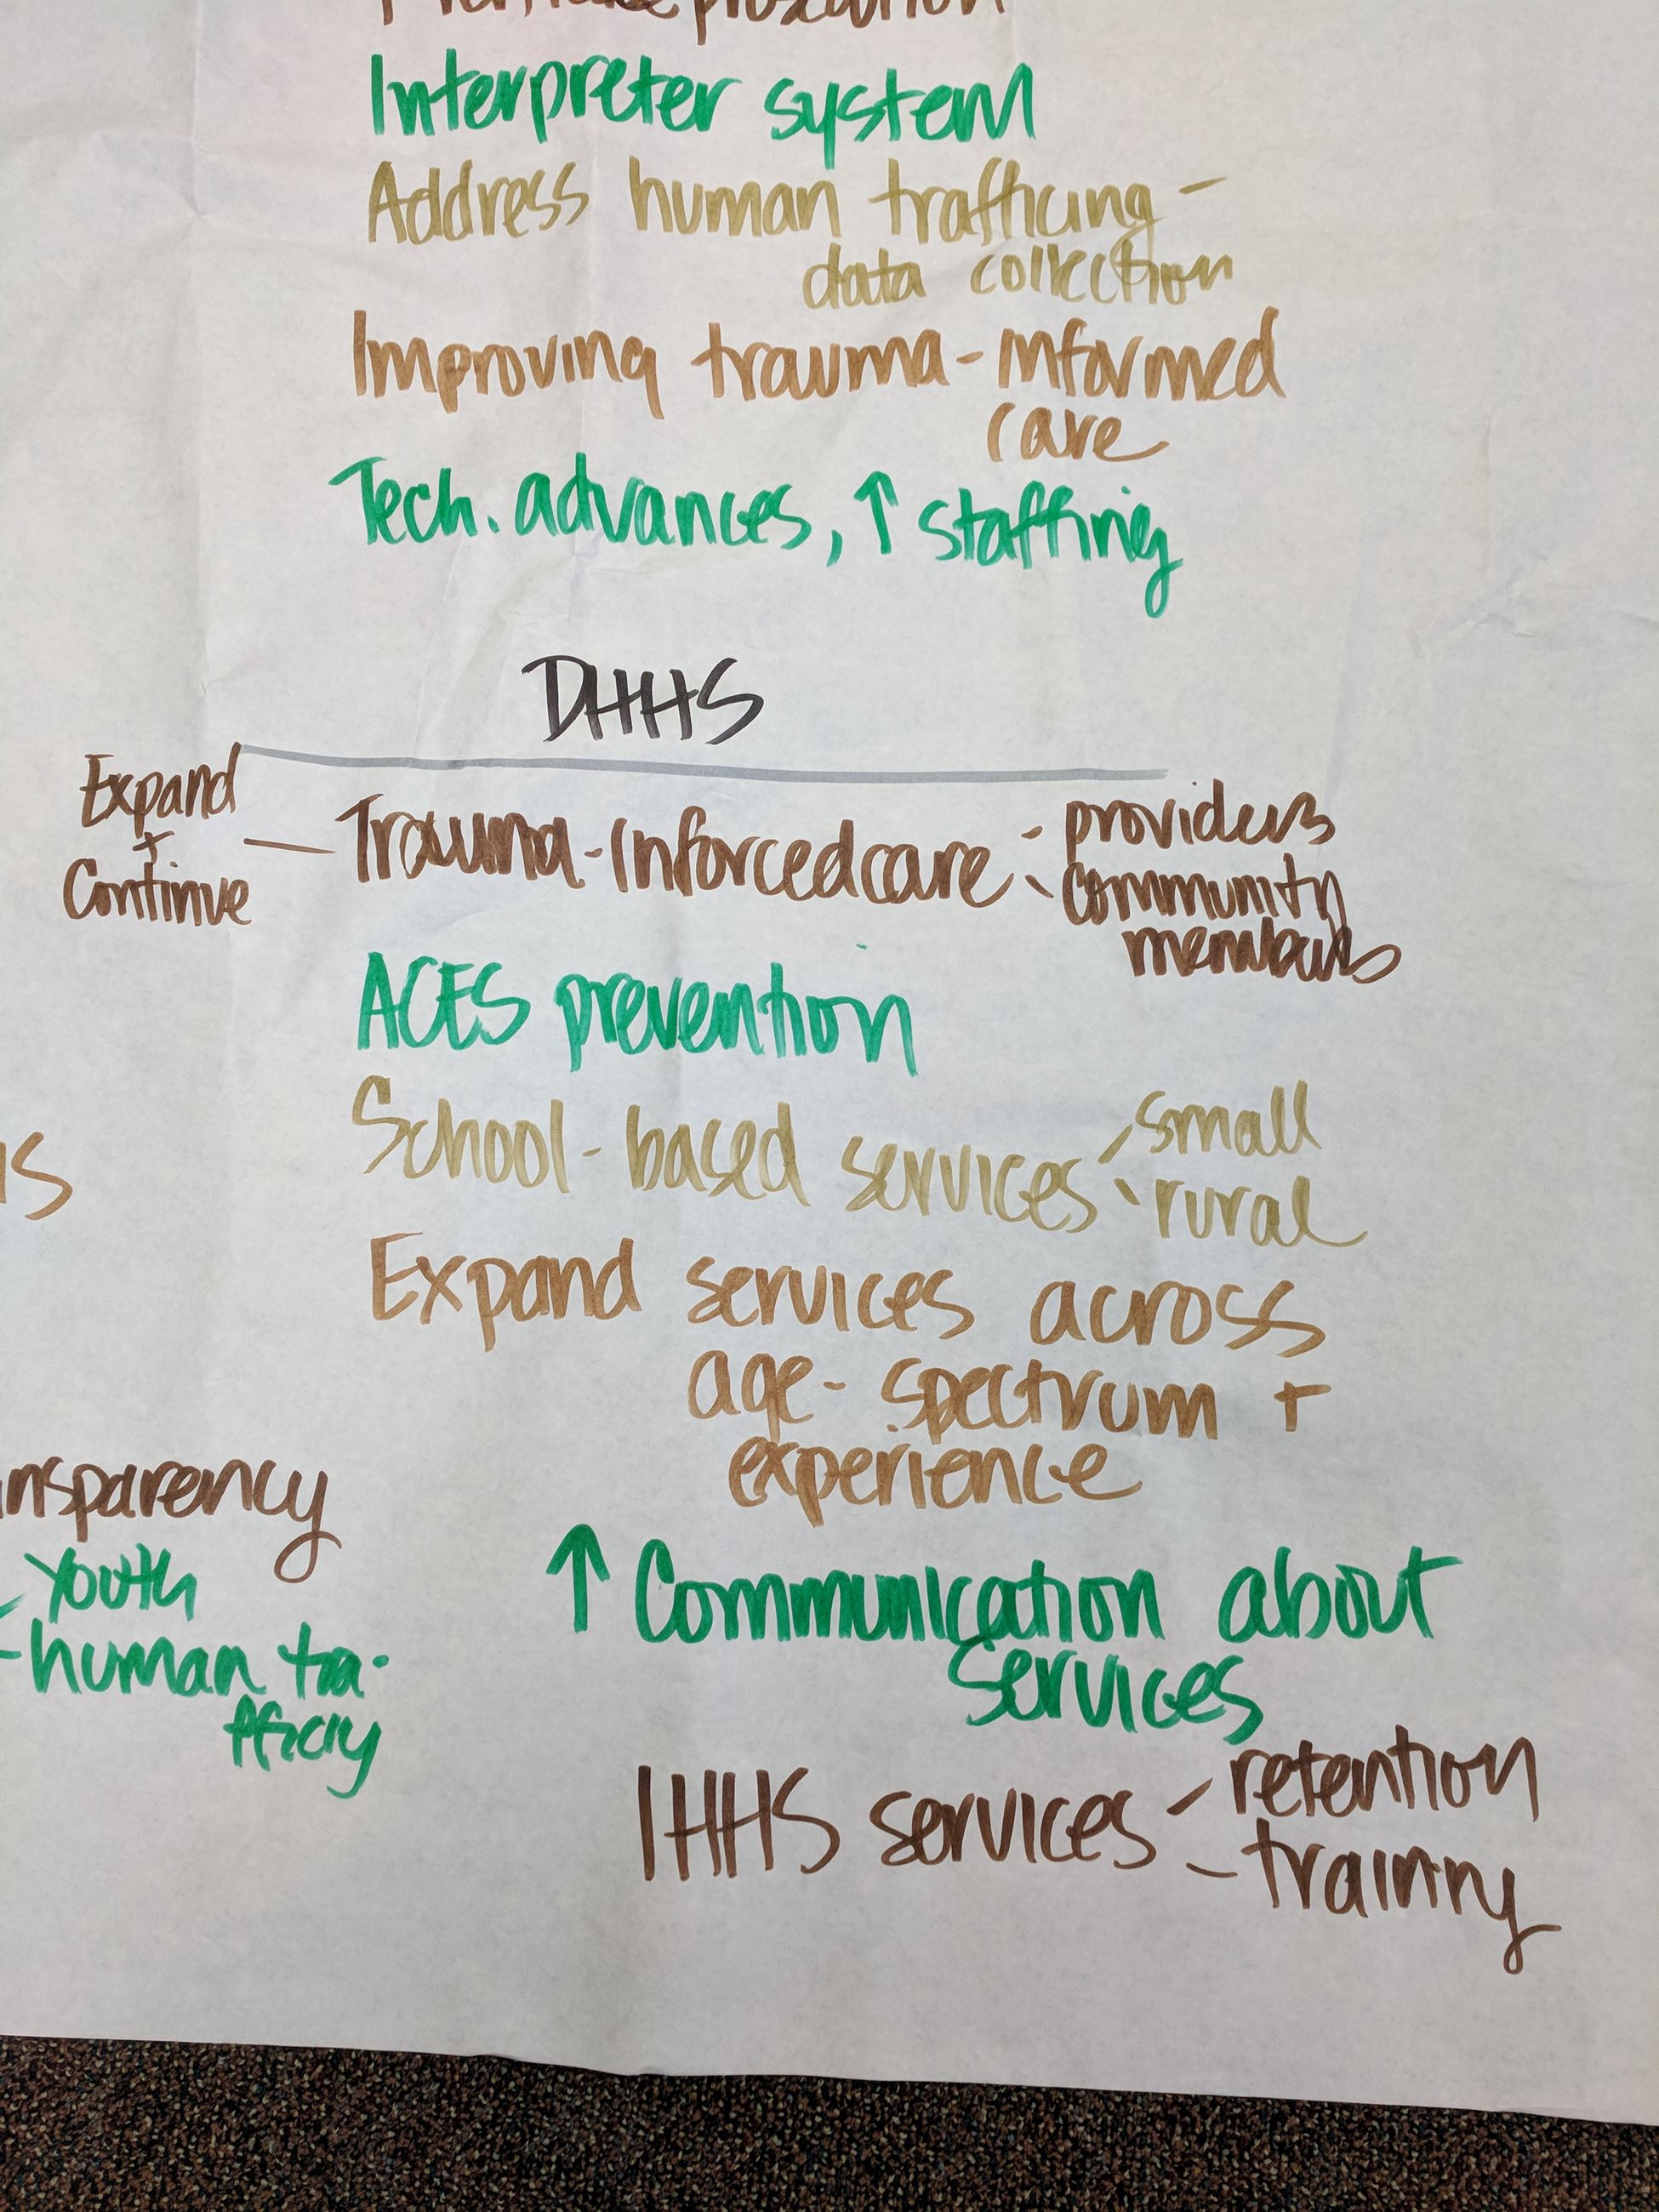 Interpreter system
Address human trafficing -
data collection
Improving trauma-informed
care
Tech. advances, ↑ staffing
DHHS
Expand
+
Continue
— Trauma-inforced care - providers
- community
members
ACES prevention
School-based services - small
- rural
Expand services across
age-spectrum +
experience
↑ Communication about
services
IHHS services - retention
- training
nsparency
- Youth
- human tra-